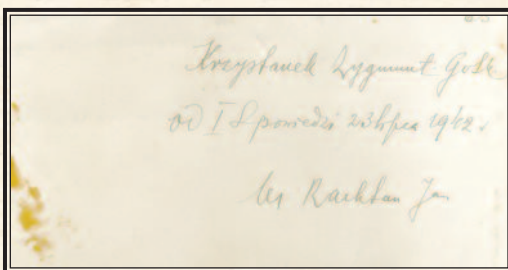 Krzysztanek Zygmunt
od I Spowiedzi 23 lipca 1942 r.
Ks Rachtan Jan